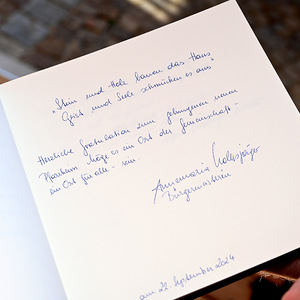 "Stein und Holz bauen das Haus
Geist und Seele schmücken es aus"
Herzliche Gratulation zum gelungenen neuen
Pfarrheim. Möge es ein Ort der Gemeinschaft -
ein Ort für alle - sein.
Annemaria
Bürgermeisterin
am 22. September 2024